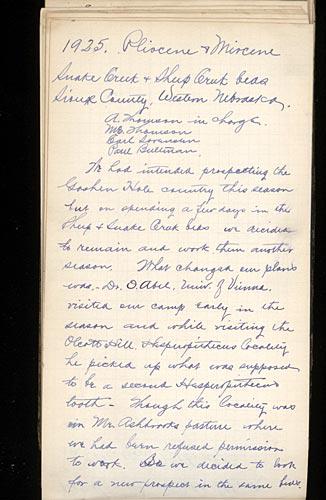 1925. Pliocene & Miocene
Snake Creek & Sheep Creek beds
Sioux County, Western Nebraska.
A. Thomson in charge.
Mrs. Thomson
Carl Sorensen
Paul Bultman.
We had intended prospecting the
Goshen Hole country this season
but on spending a few days in the
Sheep & Snake Creek beds we decided
to remain and work them another
season. What changed our plans
was - Dr. O. Abel, Univ. of Vienna.
visited our camp early in the
season and while visiting the
Olcott Hill, Hesperopithecus locality
he picked up what was supposed
to be a second Hesperopithecus
tooth - Though this locality was
in Mr. Ashbrooks pasture where
we had been refused permission
to work. we decided to look
for a new prospect in the same beds